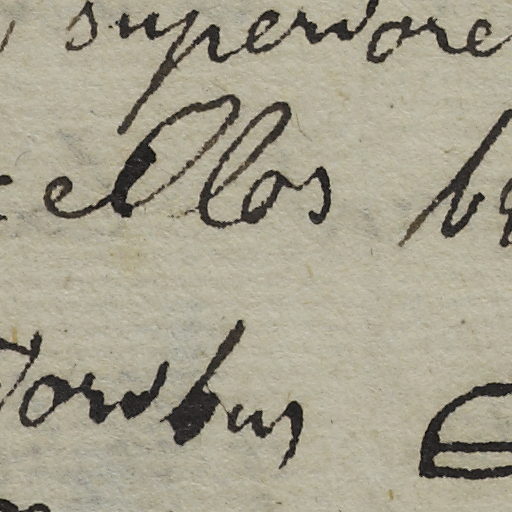 superiore
cellos
toribus